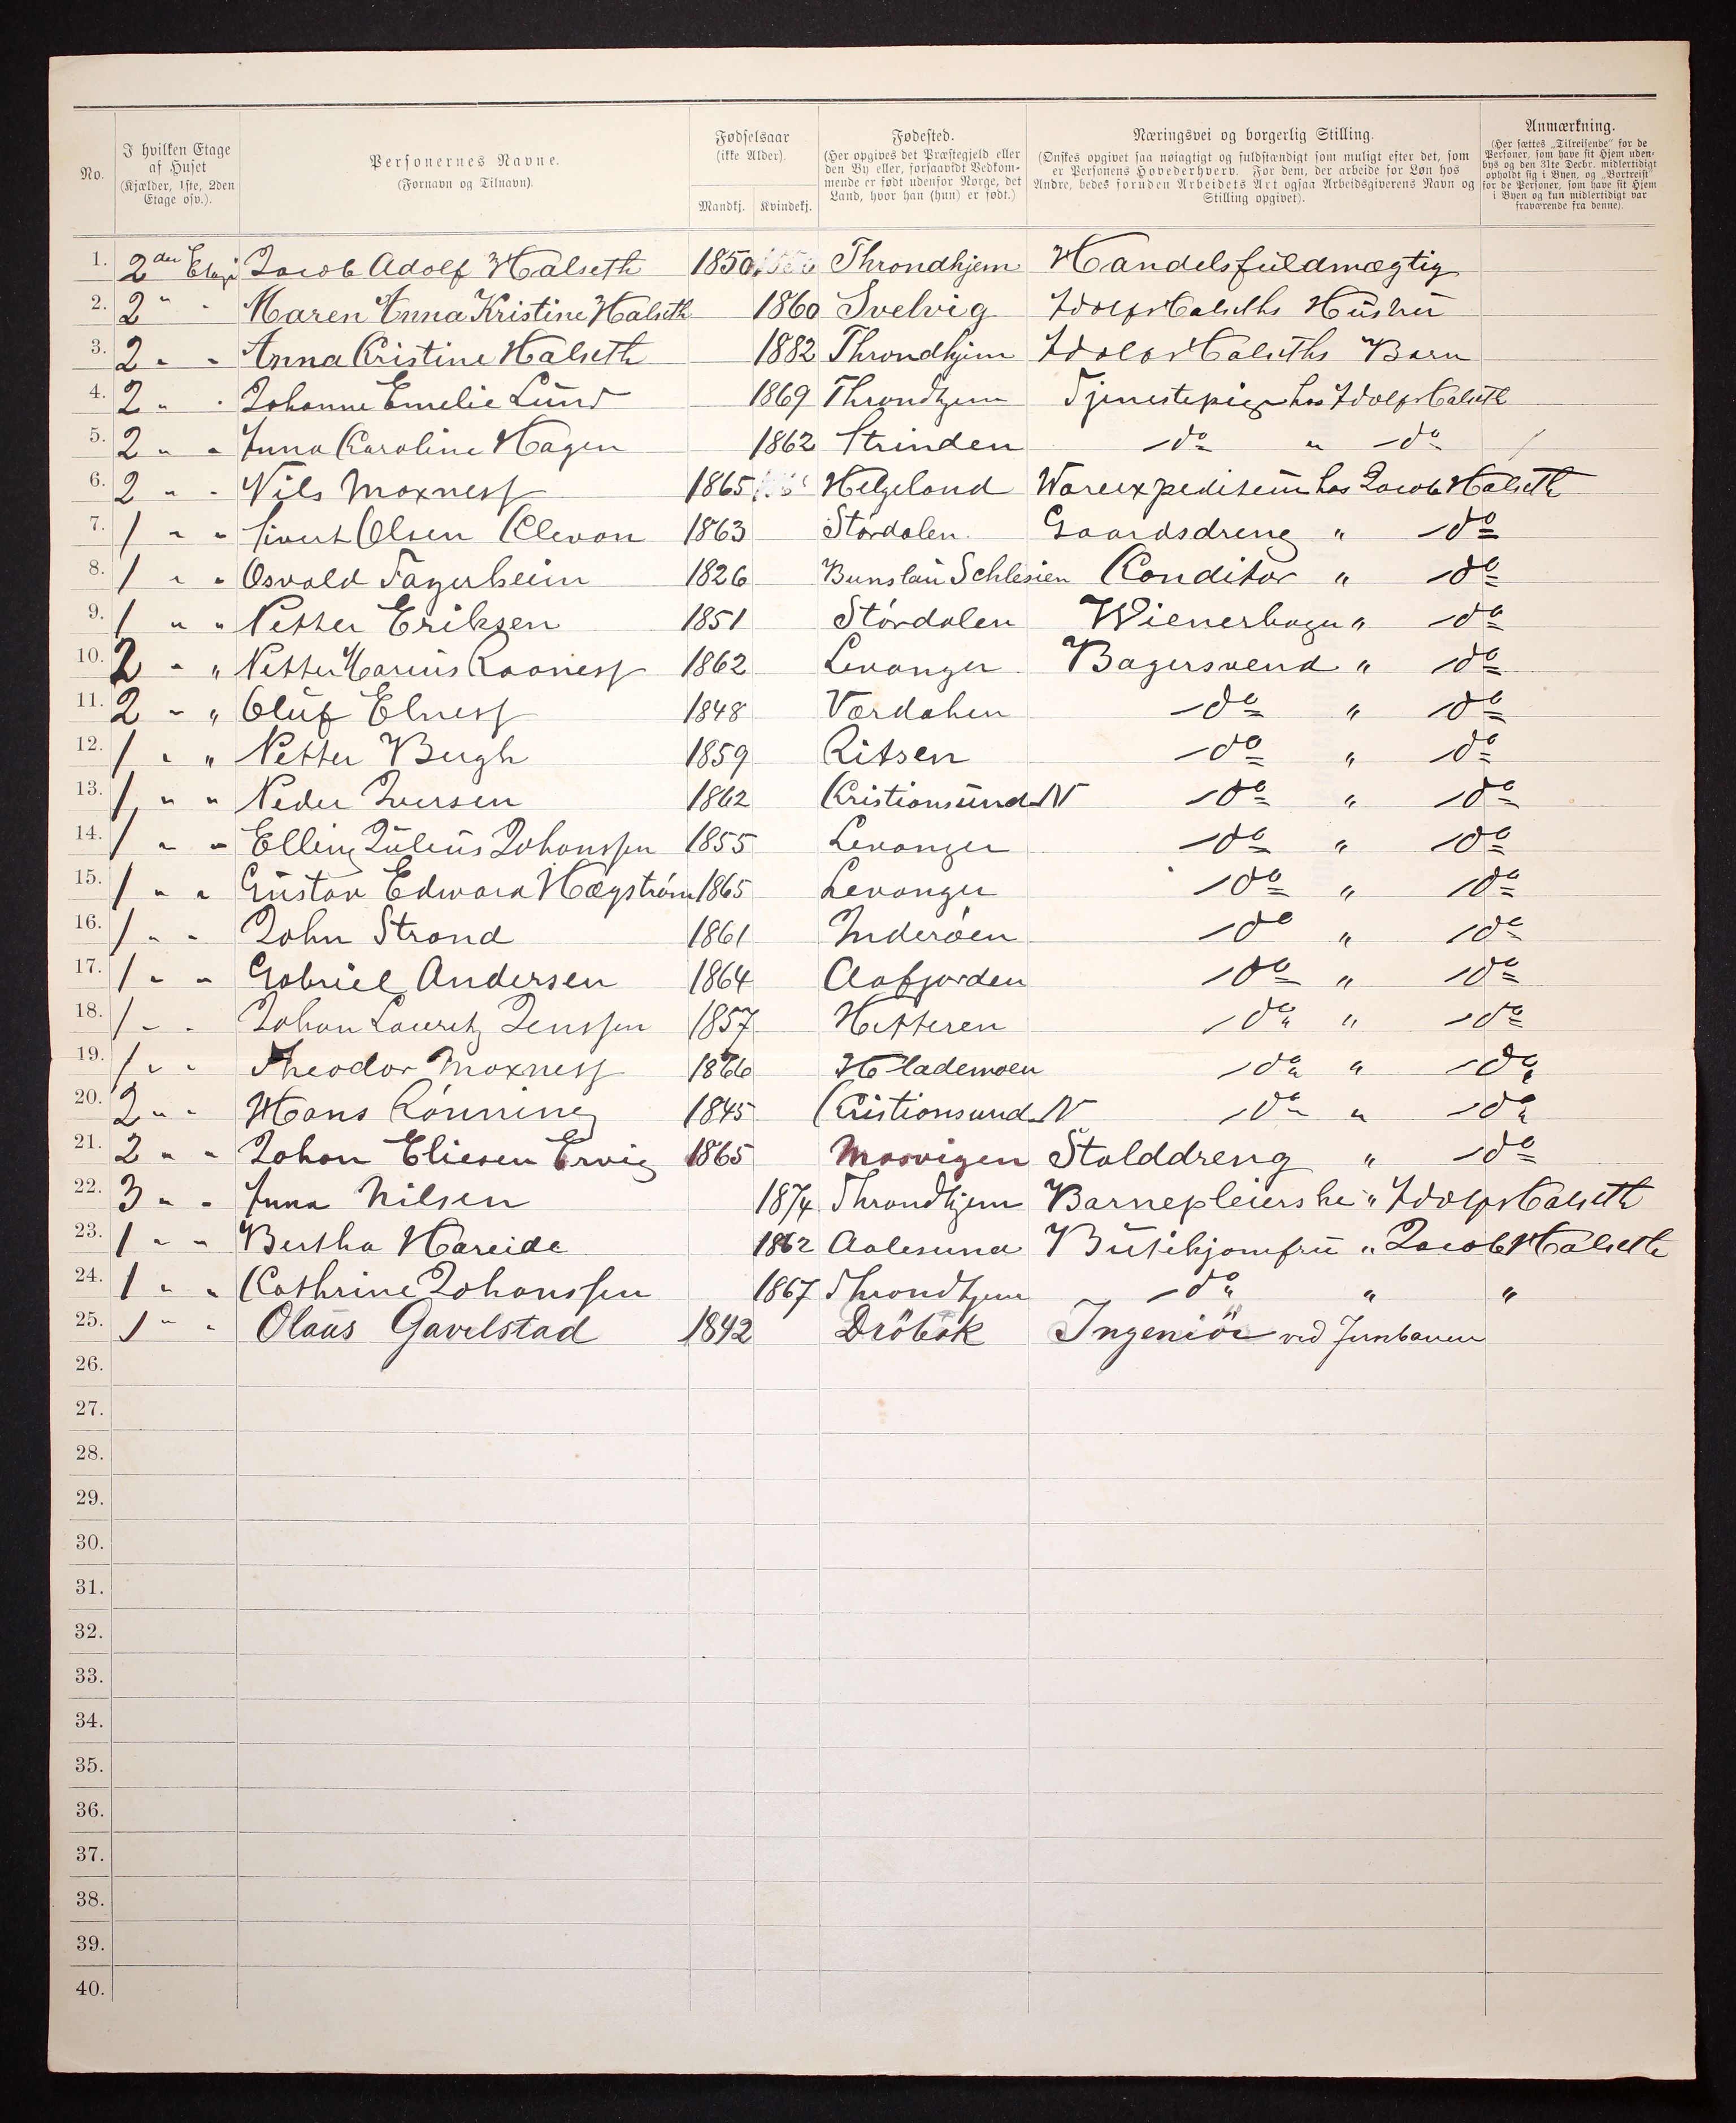 No.
I hvilken Etage af Huset (Kjælder, 1ste, 2den Etage osv.).
Personernes Navne. (Fornavn og Tilnavn).
Fødselsaar (ikke Alder).
Mandkj. Kvindekj.
Fødested. (Her opgives det Præstegjeld eller den By eller, forsaavidt Vedkommende er født udenfor Norge, det Land, hvor han (hun) er født.)
Næringsvei og borgerlig Stilling. (Ønskes opgivet saa nøiagtigt og fuldstændigt som muligt efter det, som er Personens Hovederhverv. For dem, der arbeide for Løn hos Andre, bedes foruden Arbeidets Art ogsaa Arbeidsgiverens Navn og Stilling opgivet).
Anmærkning. (Her sættes „Tilreisende" for de Personer, som have sit Hjem udenbys og den 31te Decbr. midlertidigt opholdt sig i Byen, og „Bortreist" for de Personer, som have sit Hjem i Byen og kun midlertidigt var fraværende fra denne).
1. 2den Etage Jacob Adolf Halseth 1850 Throndhjem Handelsfuldmægtig
2. 2 " " Maren Anna Kristine Halseth 1860 Svelvig Adolf Halseths Hustru
3. 2 " " Anna Cristine Halseth 1882 Throndhjem Adolf Halseths Barn
4. 2 " " Johanne Emelie Lund 1869 Throndhjem Tjenestepige hos Adolf Halseth
5. 2 " " Anna Caroline Hagen 1862 Strinden do " do
6. 2 " " Nils Moxness 1865 Helgeland Warexpediteur hos Jacob Halseth
7. 1 " " Sivert Olsen Clevan 1863 Størdalen Gaardsdreng " do
8. 1 " " Osvald Fagerheim 1826 Bunslau Schlesien Conditor " do
9. 1 " " Petter Eriksen 1851 Størdalen Wienerbager " do
10. 2 " " Petter Marius Raaness 1862 Levanger Bagersvend " do
11. 2 " " Oluf Elness 1848 Værdalen do " do
12. 1 " " Petter Bergh 1859 Ritsen do " do
13. 1 " " Peder Iversen 1862 Cristiansund N do " do
14. 1 " " Elling Julius Johanssen 1855 Levanger do " do
15. 1 " " Gustav Edward Hægstrøm 1865 Levanger do " do
16. 1 " " John Strand 1861 Inderøen do " do
17. 1 " " Gabriel Andersen 1864 Aafjorden do " do
18. 1 " " Johan Lauritz Jenssen 1857 Hitteren do " do
19. 1 " " Theodor Moxness 1866 Hlademoen do " do
20. 2 " " Hans Rønning 1845 Cristiansund N do " do
21. 2 " " Johan Eliesen Ervig 1865 Mosvigen Stalddreng " do
22. 3 " " Anna Nilsen 1874 Throndhjem Barnepleierske " Adolf Halseth
23. 1 " " Bertha Hareide 1862 Aalesund Butikjomfru " Jacob Halseth
24. 1 " " Cathrine Johanssen 1867 Throndhjem do " "
25. 1 " " Olaus Gavelstad 1842 Drøbak Ingeniør ved Jernbanen
26.
27.
28.
29.
30.
31.
32.
33.
34.
35.
36.
37.
38.
39.
40.